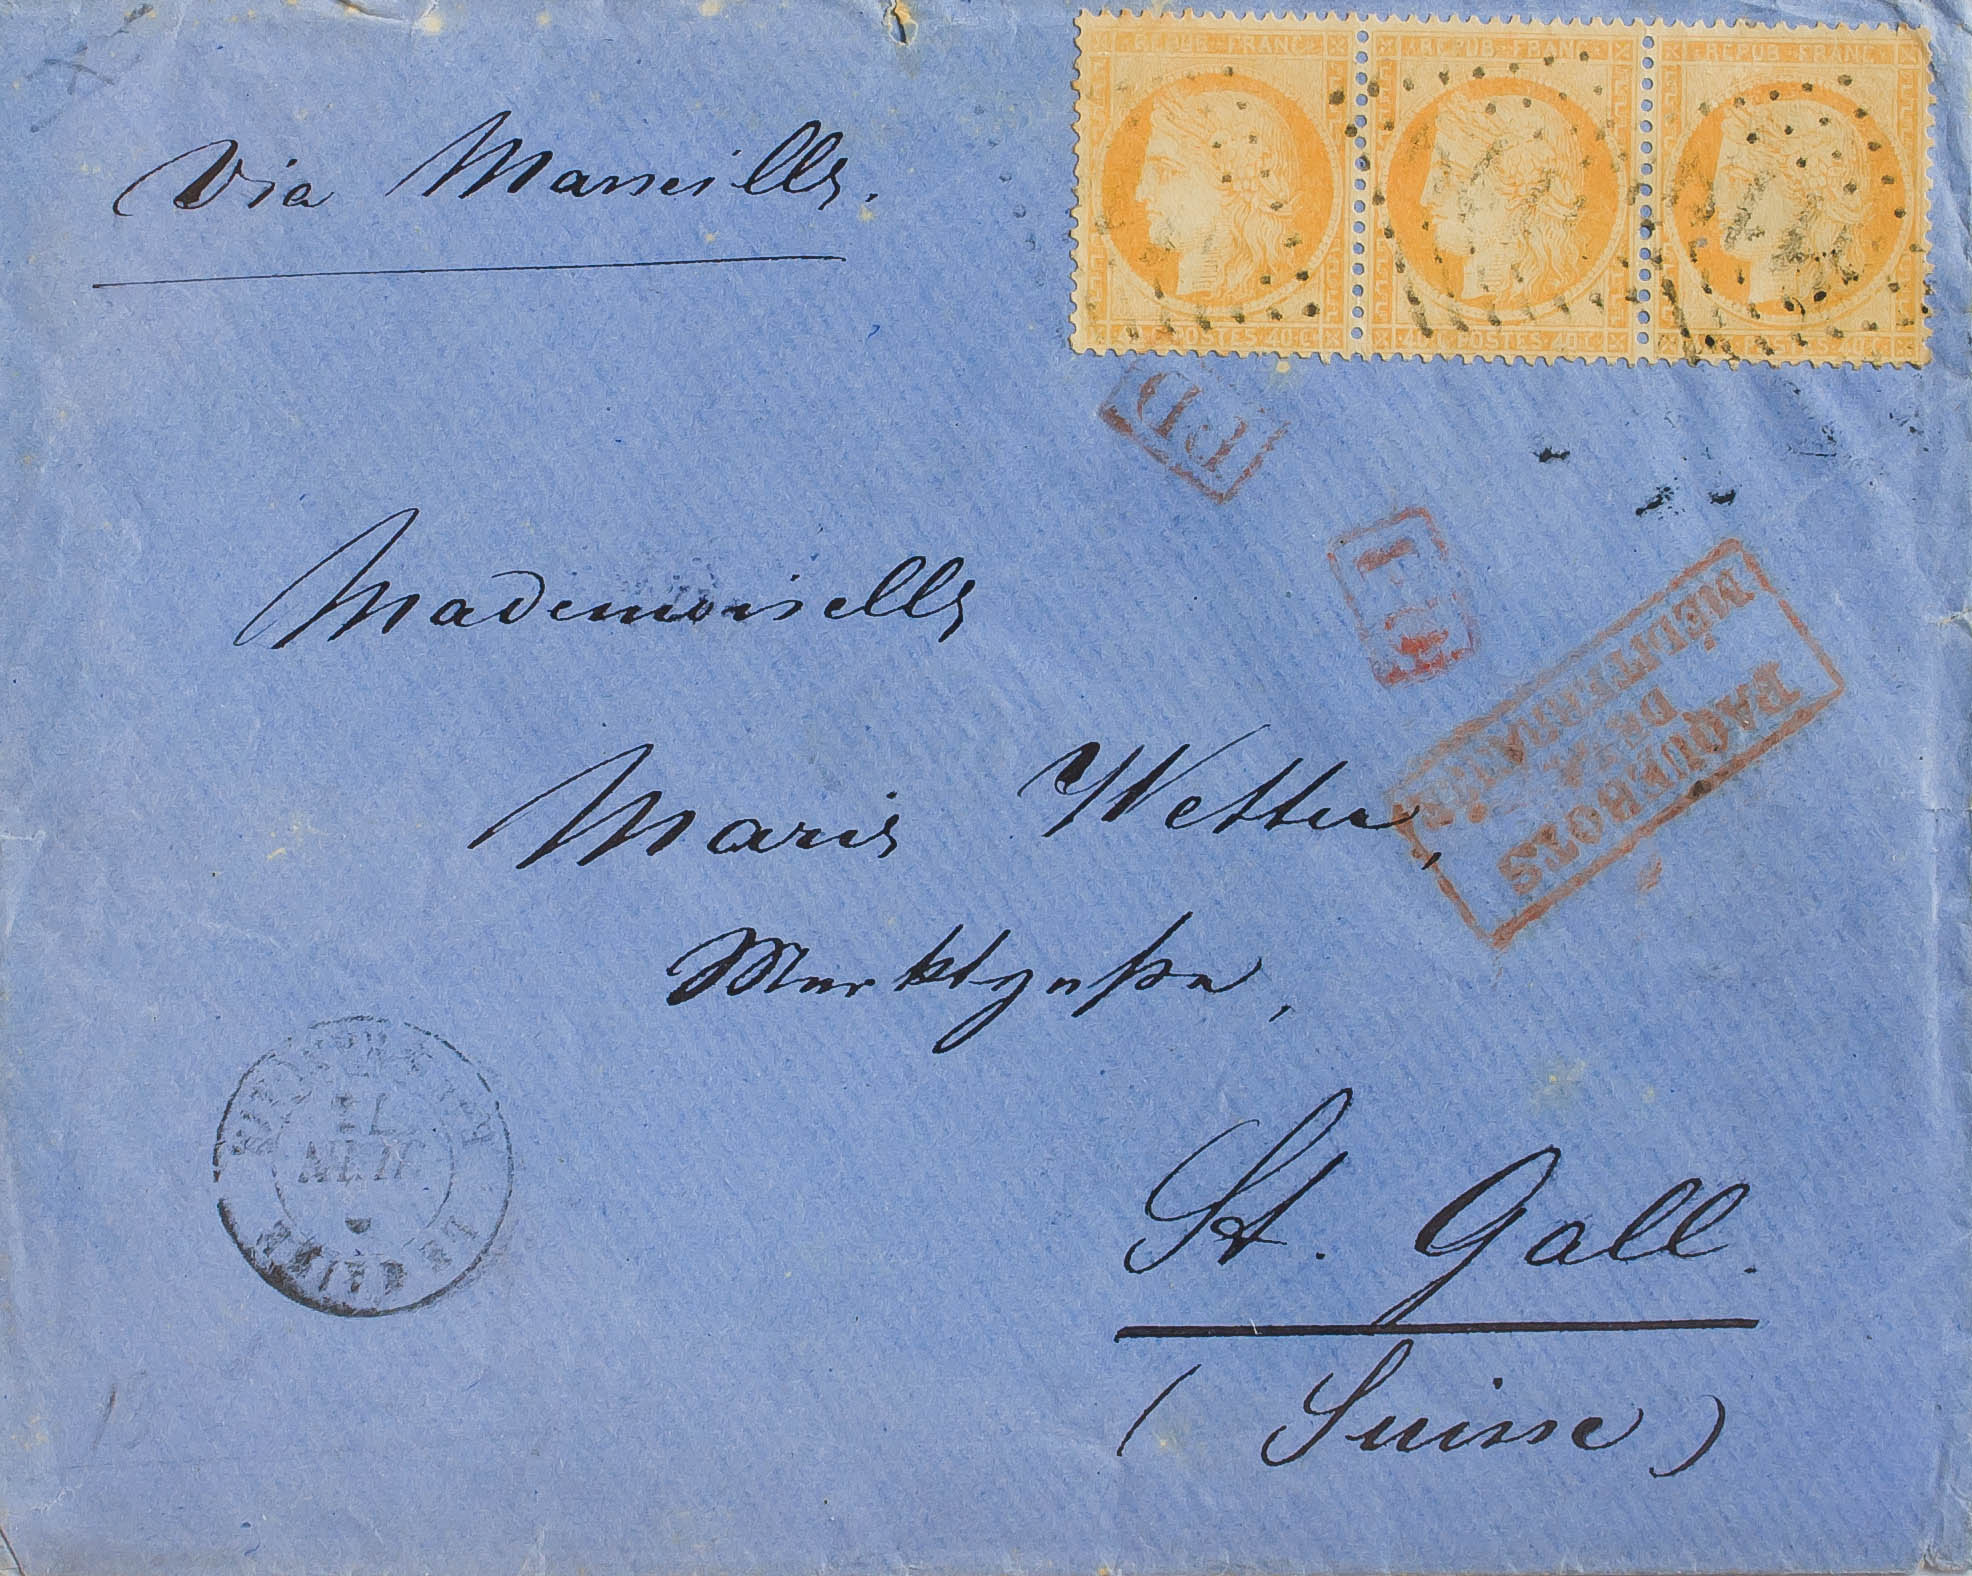 Via Marseille.
REPUB FRANC
REPUB FRANC
REPUB FRANC
POSTES 40 C
40 C POSTES 40 C
POSTES 40 C
PD
Mademoiselle
PAQUEBOTS
DE LA
MÉDITERRANÉE
Marie Wetter,
Marktgaße,
St. Gall.
(Suisse)